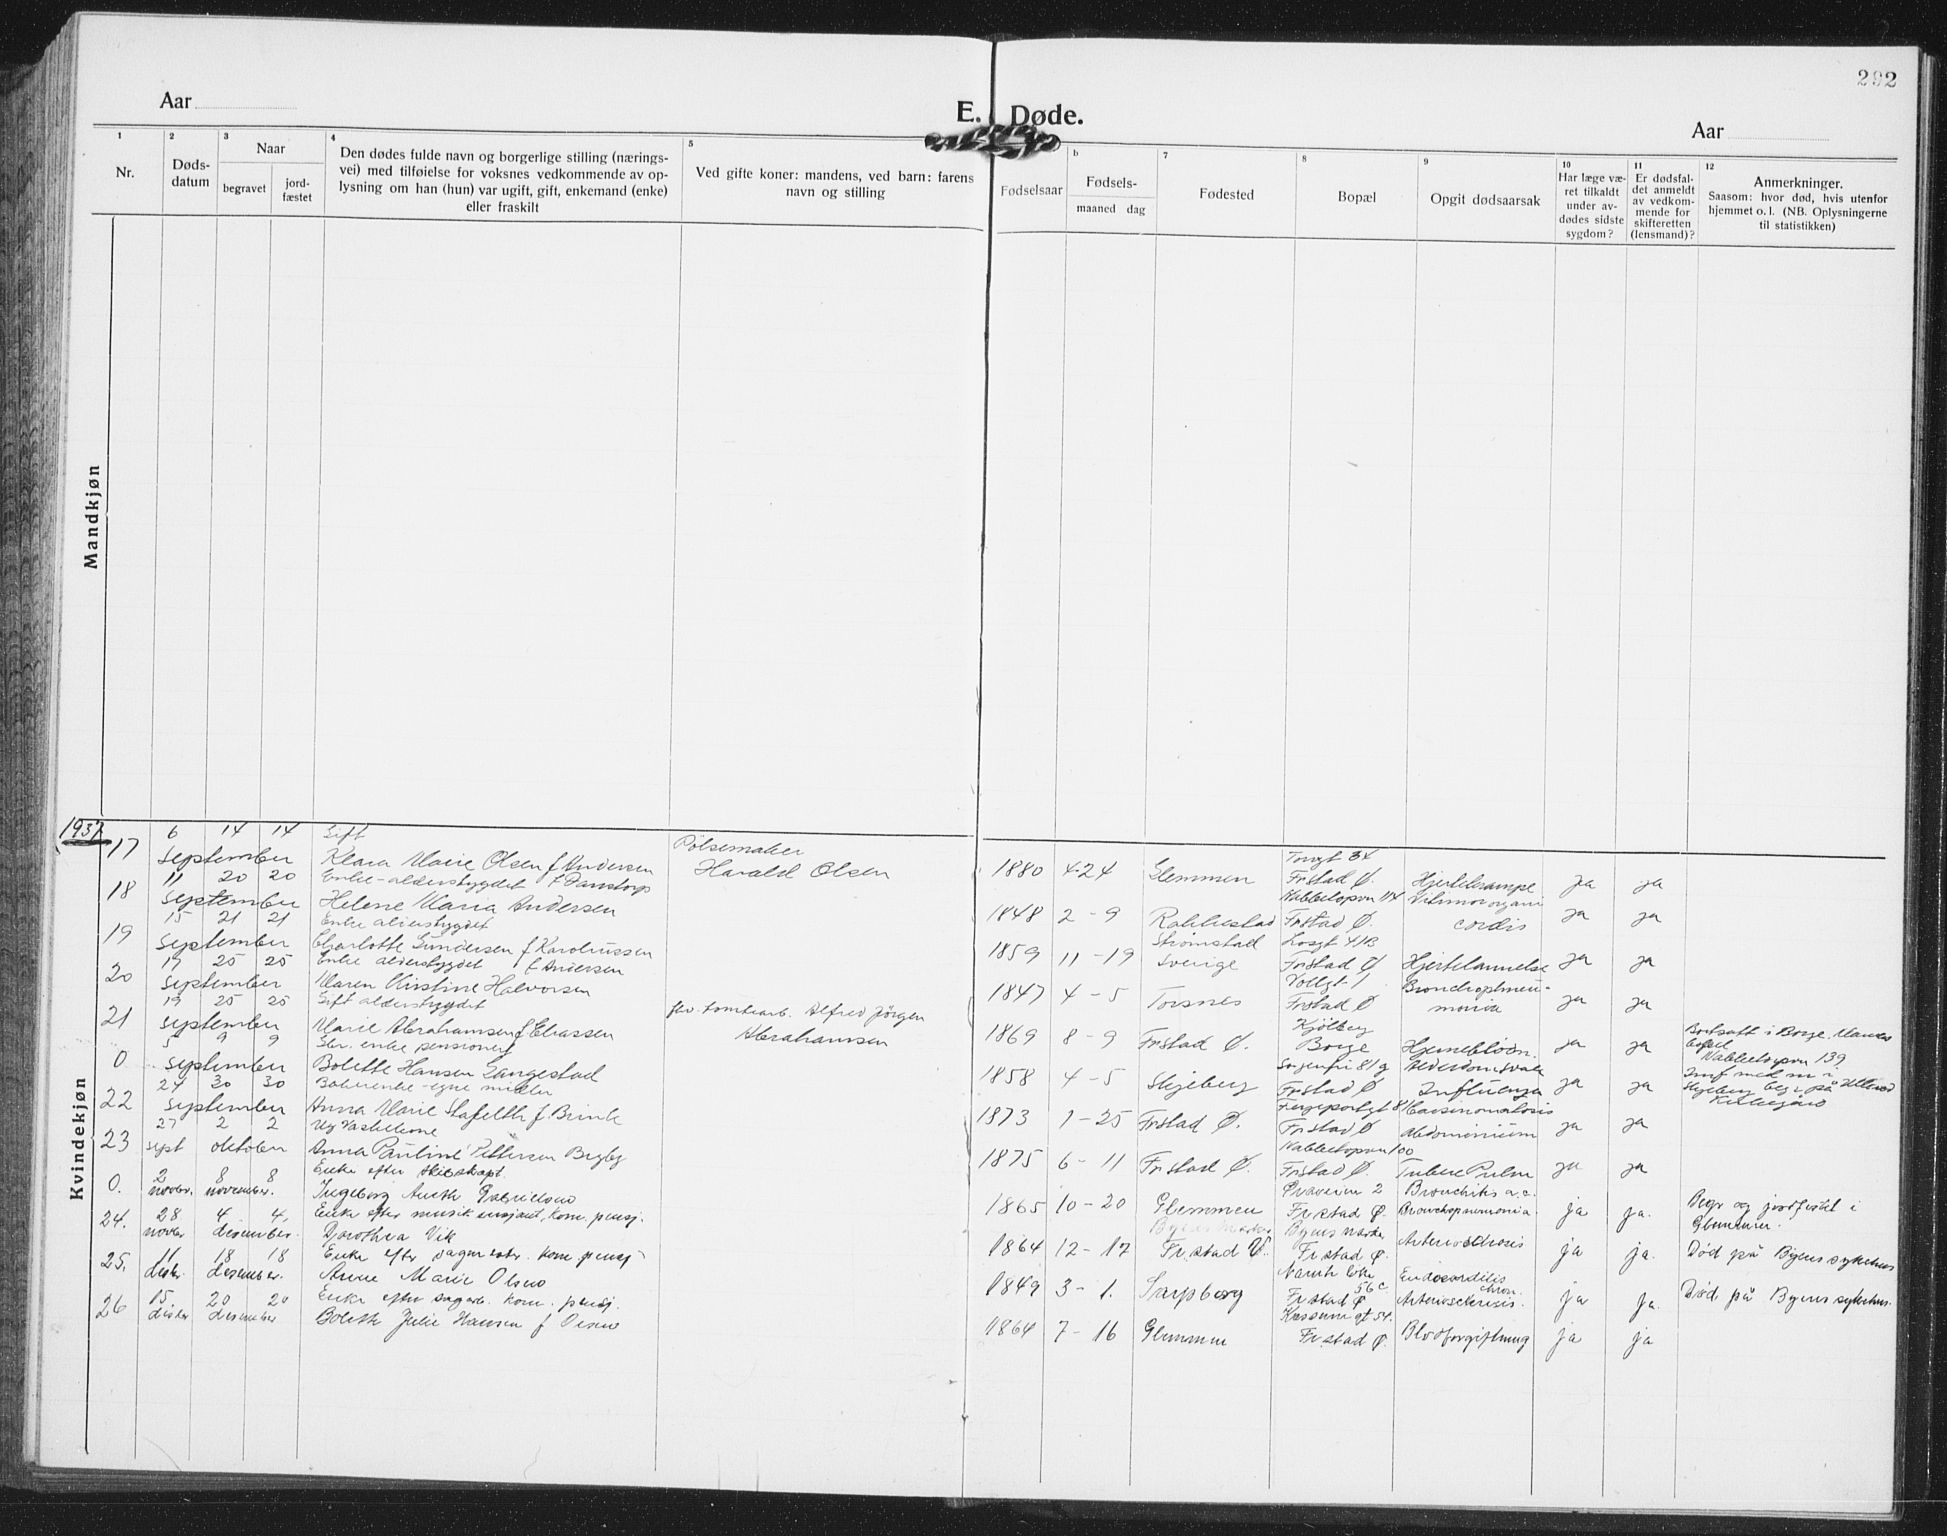 292
Aar
E. Døde.
Aar
1
Nr.
2
Døds-
datum
3
Naar
begravet
jord-
fæstet
4
Den dødes fulde navn og borgerlige stilling (nærings-
vei) med tilføielse for voksnes vedkommende av op-
lysning om han (hun) var ugift, gift, enkemand (enke)
eller fraskilt
5
Ved gifte koner: mandens, ved barn: farens
navn og stilling
Fødselsaar
b
Fødsels-
maaned dag
7
Fødested
8
Bopæl
9
Opgit dødsaarsak
10
Har læge væ-
ret tilkaldt
under av-
dødes sidste
sygdom?
11
Er dødsfal-
det anmeldt
av vedkom-
mende for
skifteretten
(lensmand)?
12
Anmerkninger.
Saasom: hvor død, hvis utenfor
hjemmet o. l. (NB. Oplysningerne
til statistikken)
Mandkjøn
Kvindekjøn
1937
17 6 14 14 september
Gift
Klara Marie Olsen f. Andersen
Pølsemaker
Harald Olsen
1880 4-24 Glemmen
Torvgt 34
Frstad Ø.
Hjertekrampe ja ja
18 11 20 20 september
Enke-alderstrygdet f. Danstorp
Helene Maria Andersen
1848 2-9 Rakkestad
Nabbetorpvn 114
Frstad Ø.
Vitium organi
cordis ja ja
19 15 21 21 september
Enke alderstrygdet
Charlotte Gundersen f. Karolussen
1859 11-19
Strømstad
Sverige
Losgt 41B
Frstad Ø
Hjertelammelse ja ja
20 19 25 25 september
Enke alderstrygdet f. Andersen
Maren Kirstine Halvorsen
1847 4-5 Torsnes
Vollgt 1
Frstad Ø
Bronchopneu-
monia ja ja
21 19 25 25 september
Gift alderstrygdet
Marie Abrahamsen f. Eliassen
fhv. tomtearb. Alfred Jörgen
Abrahamsen
1869 8-9 Frstad Ø.
Kjölberg
Borge
Hjerneblødn. ja ja
Bortsatt i Borge.
Nabbetorpvn 139
0 5 9 9 september
enke pensionert
Bolette Hansen Langestad
1858 4-5 Skjeberg
Sorgenfri 81 g
Frstad Ø
Alderdomsvak
Influenza ja ja
Jmf med m i
Skjeberg
22 24 30 30 september
enke - egne midler
Anna Marie Stafeldt f. Brinck
1873 1-25 Frstad Ø.
Fergeportgt 81
Frstad Ø
Carsinomatosis
abdominium ja ja
23 27 sept 2 2 oktober
Ug vaskekone
Anna Pauline Pettersen Bigby
1875 6-11 Frstad Ø.
Nabbetorpvn 100
Frstad Ø.
Tuberc Pulm ja ja
0. 2 novbr. 8 8 november.
Enke efter skibskapt.
Ingeborg Aneth Gabrielsen
1865 10-20 Glemmen
2
Frstad Ø.
Bronchitis a.c.
Bronchopneumonia ja ja.
Begr og jordfestet i
Glemmen.
24. 28 novbr 4 4. desember.
Enke efter musik sersjant, kom. pensj.
Dorothea Vik
1864 12-17
Byens Marker
Fr.stad Ø.
Byens Marker
Fr.stad Ø.
Arteriosclerosis ja ja.
Død på Byens sykehus
25. 11 desbr. 18 18 desember.
Enke efter sagmester. kom. pensj
Anne Marie Olsen
1849 3-1. Sarpsborg
56 c
Fr.stad Ø
Endocarditis
chron.
Arteriosclerosis. ja ja.
Død på Byens sykehus.
26 15 desbr 20 20 desember
Enke efter sagarb. kom. pensj.
Boleth Julie Hansen f. Olsen
1864 7-16 Glemmen
gt 54.
Fr.stad Ø.
Blodforgiftning ja ja